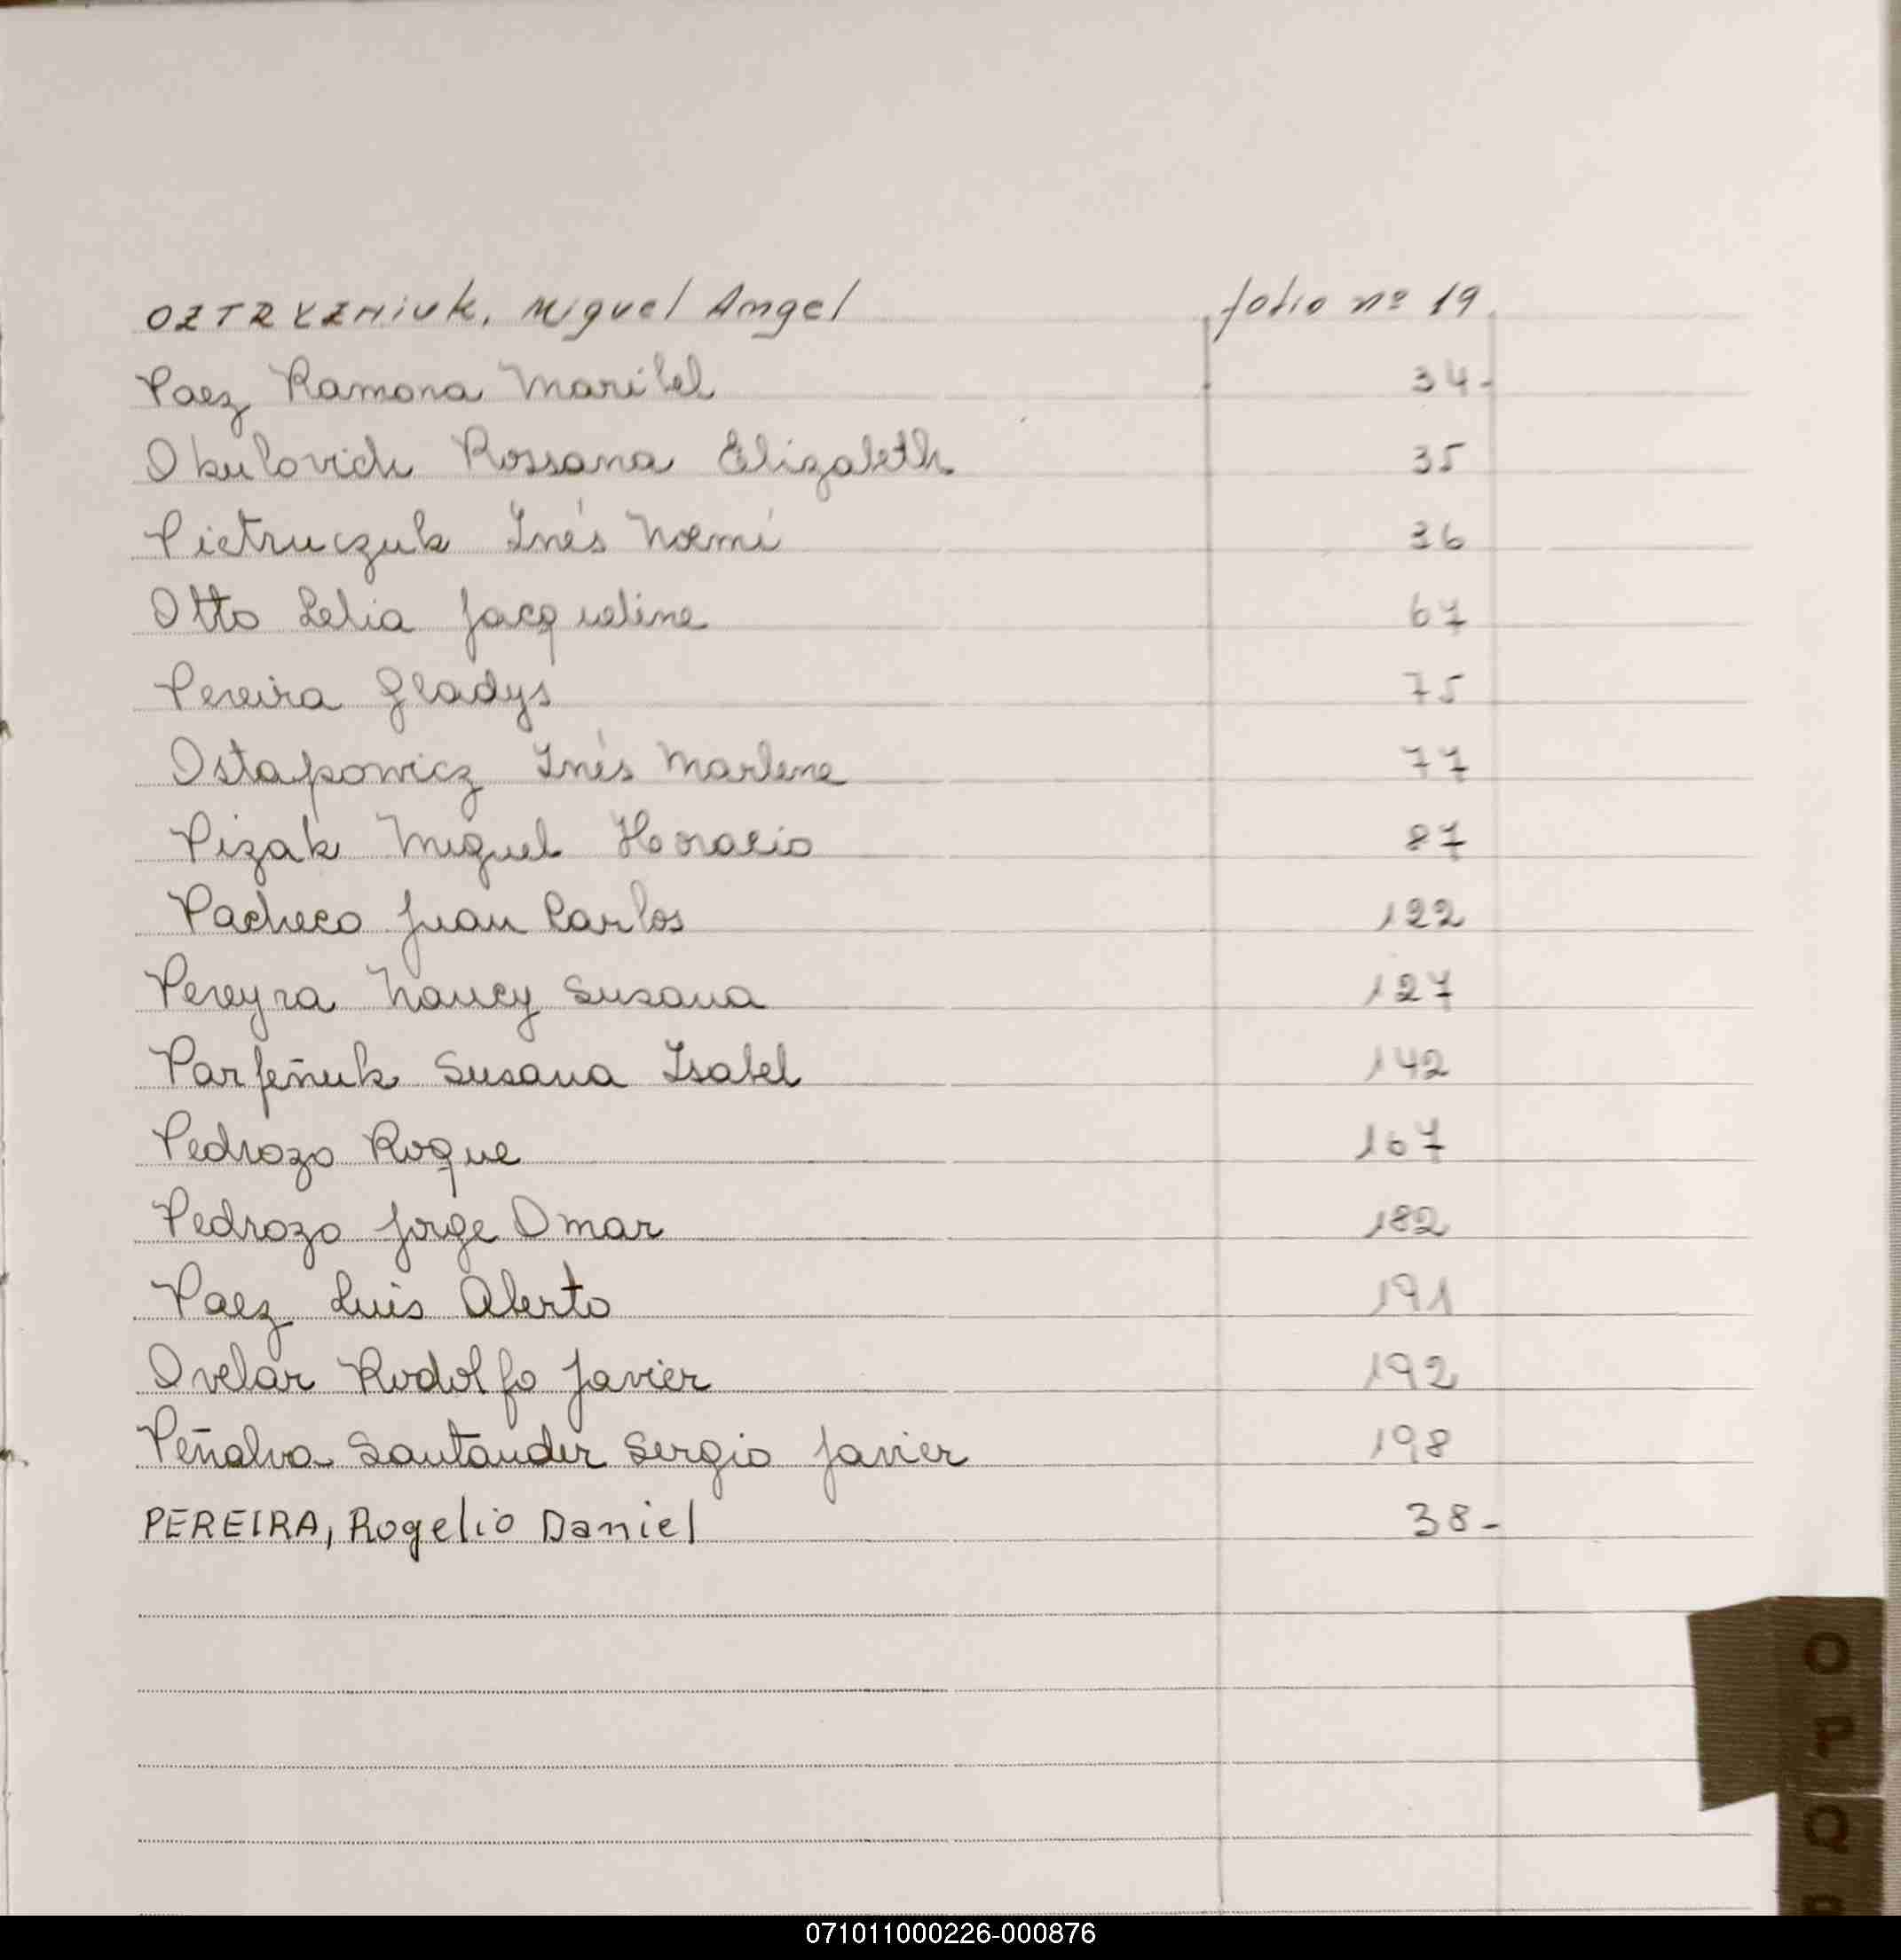 OZTRYZNIUK, Miguel Angel folio nº 19
Paez Ramona Maribel 34-
Okulovich Rossana Elizabeth 35
Pietruczuk Inés Noemí 36
Otto Lelia Jacqueline 67
Pereira Gladys 75
Ostapowicz Inés Marlene 77
Pizak Miguel Horacio 87
Pacheco Juan Carlos 122
Pereyra Nancy Susana 127
Parfeñuk Susana Isabel 142
Pedrozo Roque 167
Pedrozo Jorge Omar 182
Paez Luis Alberto 191
Ovelar Rodolfo Javier 192
Peñalva Santander Sergio Javier 198
PEREIRA, Rogelio Daniel 38-
O
P
Q
071011000226-000876